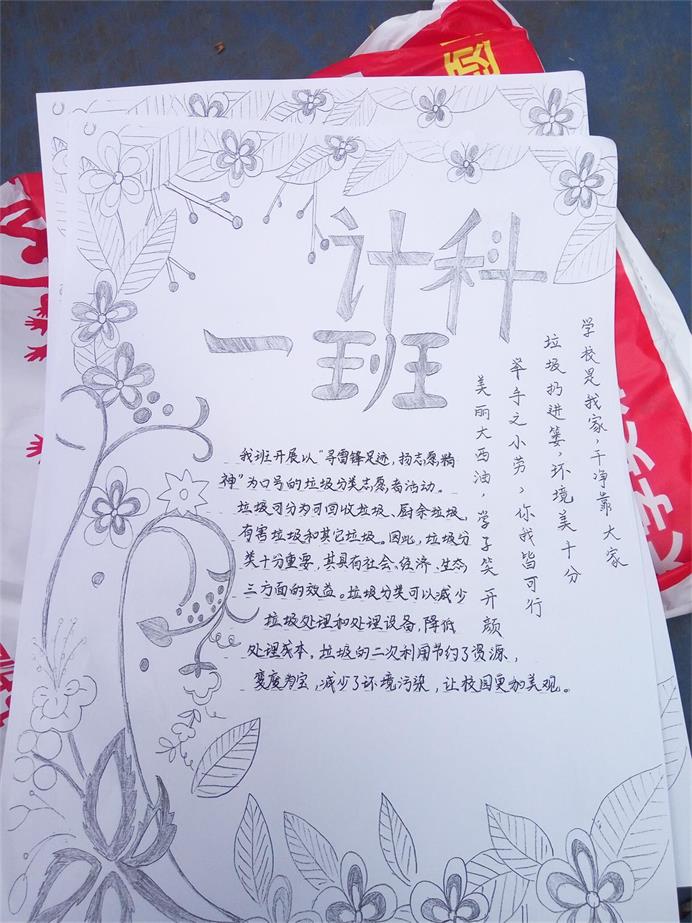 计科
一班
学校是我家，干净靠大家
垃圾扔进篓，环境美十分
举手之小劳，你我皆可行
美丽大西油，学子笑开颜
我班开展以“寻雷锋足迹，扬志愿精
神”为口号的垃圾分类志愿者活动。
垃圾可分为可回收垃圾、厨余垃圾，
有害垃圾和其它垃圾。因此，垃圾分
类十分重要，其具有社会、经济、生态，
三方面的效益。垃圾分类可以减少
垃圾处理和处理设备，降低
处理成本。垃圾的二次利用节约了资源，
变废为宝，减少了环境污染，让校园更加美观。